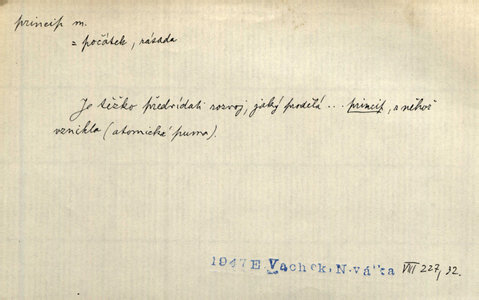 princip m.
= počátek, zásada
Je těžko předvídati rozvoj, jaký prodělá ... princip, z něhož
vznikla (atomická puma).
1947 E. Vachek, N. válka VIII 227, 32.